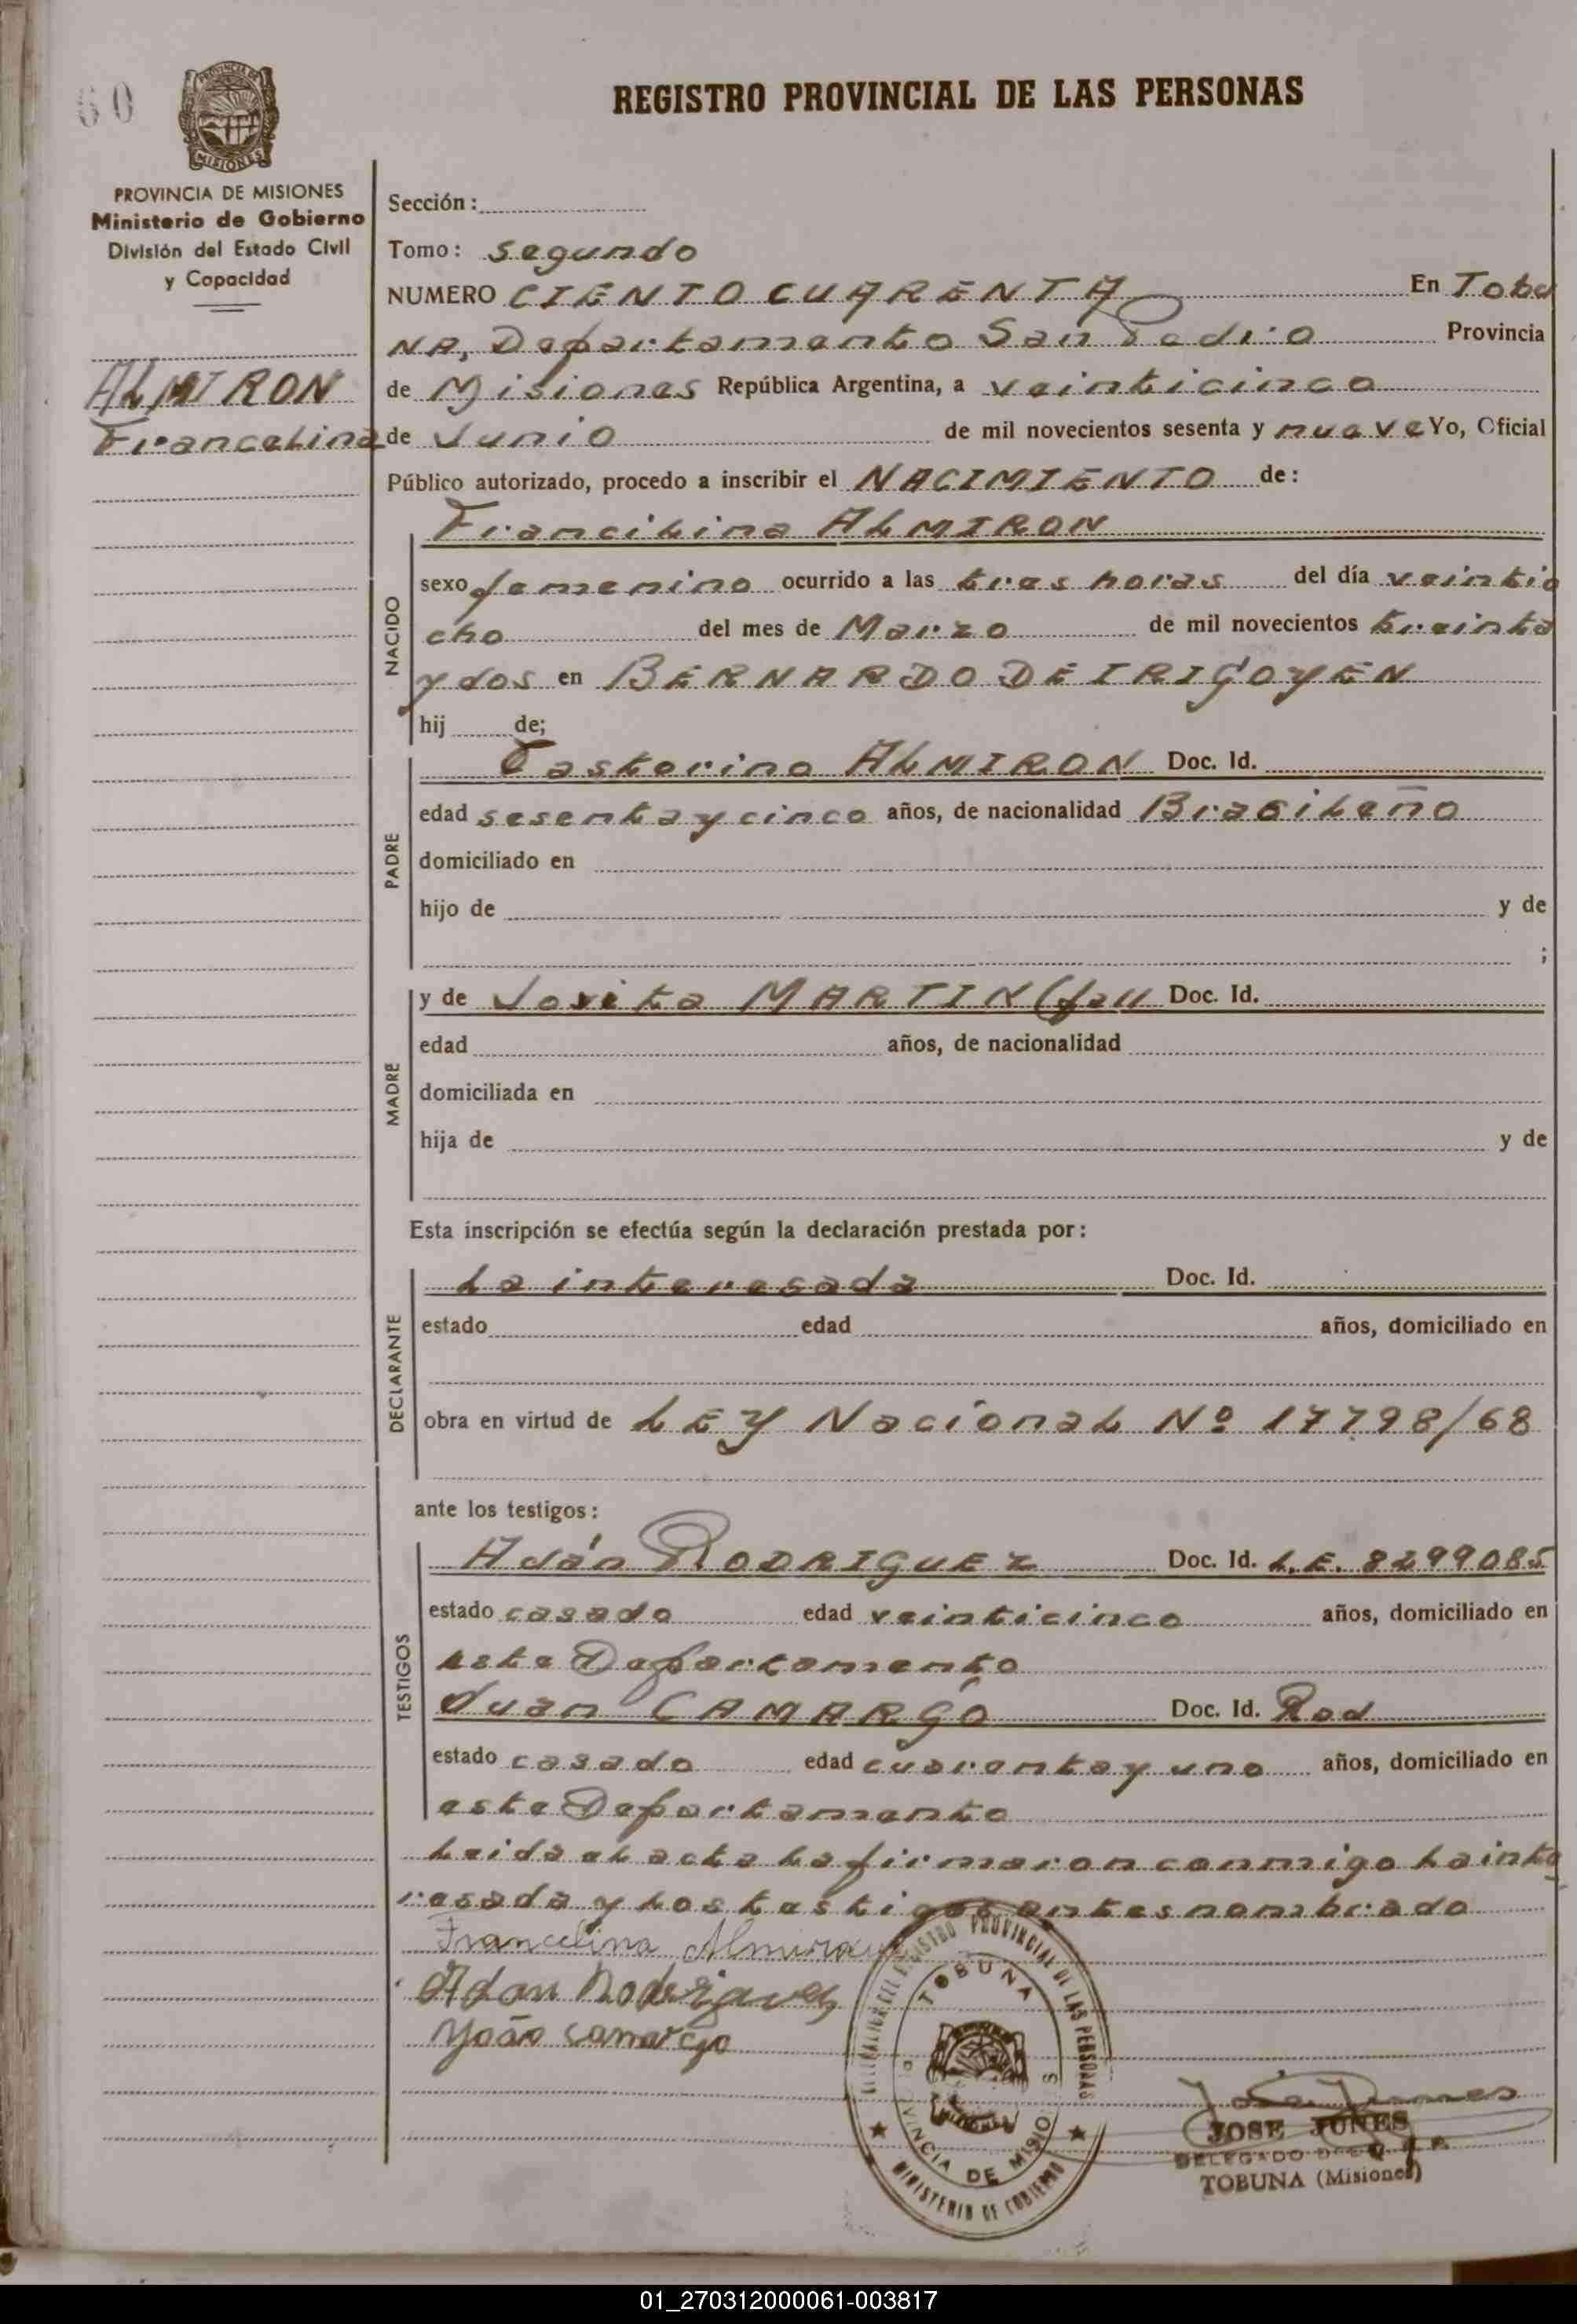 60
REGISTRO PROVINCIAL DE LAS PERSONAS
PROVINCIA DE MISIONES
Ministerio de Gobierno
División del Estado Civil
y Capacidad
ALMIRON
Francelina
Sección:
Tomo: segundo
NUMERO CIENTO CUARENTA En Tobu
NA, Departamento San Pedro Provincia
de Misiones República Argentina, a veinticinco
de Junio de mil novecientos sesenta y nueve Yo, Oficial
Público autorizado, procedo a inscribir el NACIMIENTO de:
NACIDO
Francilina ALMIRON
sexo femenino ocurrido a las tres horas del día veintio
cho del mes de Marzo de mil novecientos treinta
y dos en BERNARDO DE IRIGOYEN
hij de;
PADRE
Tastorino ALMIRON Doc. Id.
edad sesenta y cinco años, de nacionalidad Brasileño
domiciliado en
hijo de y de
;
MADRE
y de Jovita MARTIN (fall Doc. Id.
edad años, de nacionalidad
domiciliada en
hija de y de
Esta inscripción se efectúa según la declaración prestada por:
DECLARANTE
La interesada Doc. Id.
estado edad años, domiciliado en
obra en virtud de LEY Nacional Nº 17798/68
ante los testigos:
TESTIGOS
Adán RODRIGUEZ Doc. Id. L.E. 8299085
estado casado edad veinticinco años, domiciliado en
este Departamento
Juan CAMARGO Doc. Id. Rod
estado casado edad cuarenta y uno años, domiciliado en
este Departamento
Leida el acta la firmaron conmigo la inte
resada y los testigos antes nombrado
Francelina Almiron
Adan Rodriguez
João Camargo
REGISTRO PROVINCIAL DE LAS PERSONAS
TOBUNA
PROVINCIA DE MISIONES
MINISTERIO DE GOBIERNO
JOSE JUNES
DELEGADO
TOBUNA (Misiones)
01_270312000061-003817